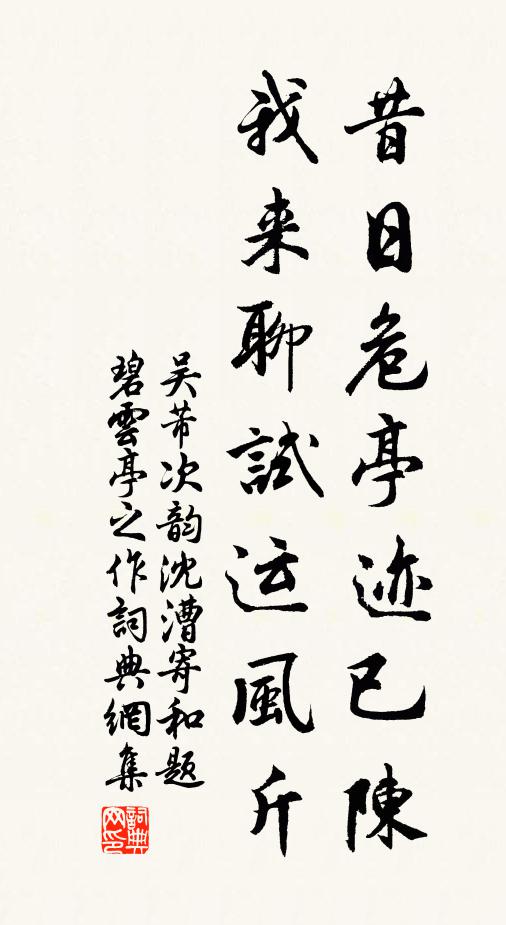 昔日危亭迹已陳
我来聊試运風斤
吴芾次韵沈漕寄和题
碧雲亭之作詞典網集
詞典網印